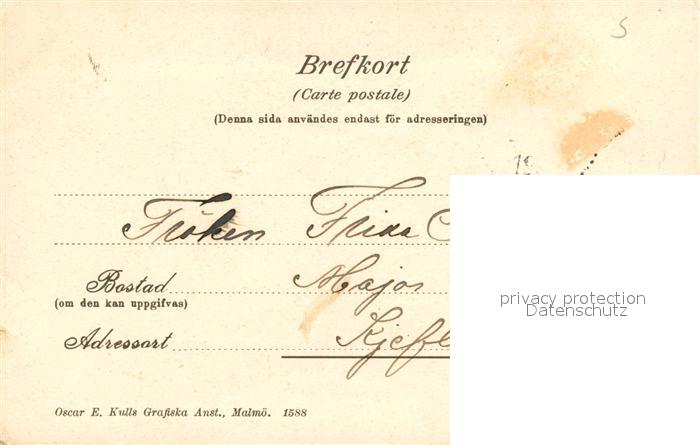 5
Brefkort
(Carte postale)
(Denna sida användes endast för adresseringen)
Fröken Frida
Bostad Major
(om den kan uppgifvas)
privacy protection
Datenschutz
Adressort
Oscar E. Kulls Grafiska Anst., Malmö. 1588